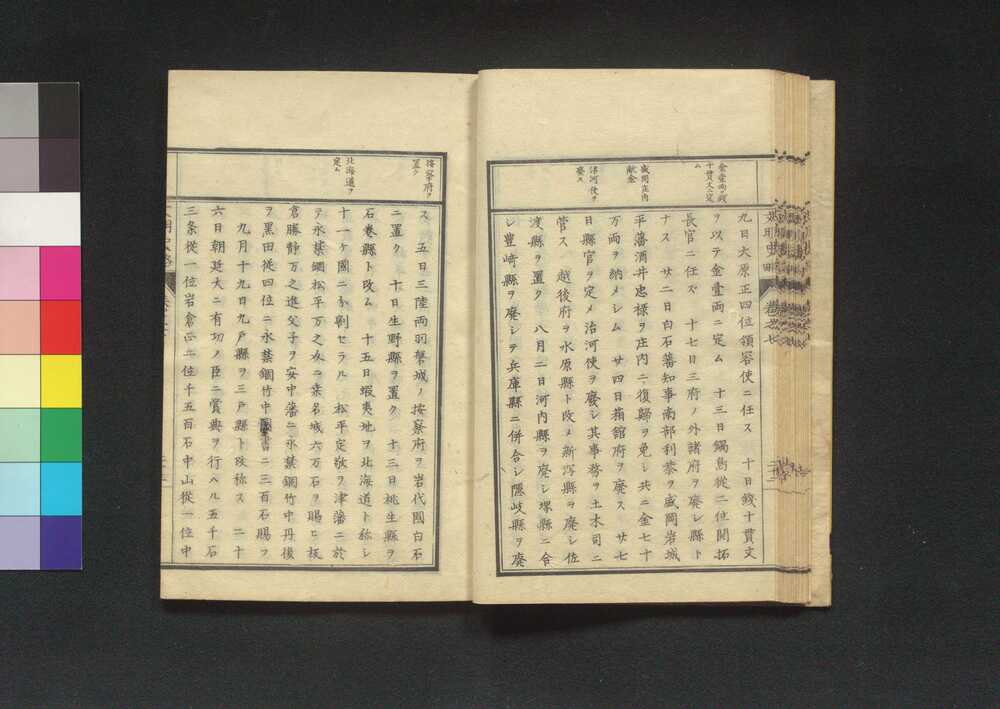 金壹両ヲ銭
十貫文ニ定
ム
盛岡庄内
献金
治河使ヲ
廃ス
九日大原正四位領客使ニ任ス 十日銭十貫文
ヲ以テ金壹両ニ定ム 十三日鍋島從二位開拓
長官ニ任ス 十七日三府ノ外諸府ヲ廃シ縣ト
ナス 廿二日白石藩知事南部利恭ヲ盛岡岩城
平藩酒井忠禄ヲ庄内ニ復帰ヲ免シ共ニ金七十
万両ヲ納メシム 廿四日箱館府ヲ廃ス 廿七
日縣官ヲ定メ治河使ヲ廃シ其事務ヲ土木司ニ
管ス 越後府ヲ水原縣ト改メ新泻縣ヲ廃シ佐
渡縣ヲ置ク 八月二日河内縣ヲ廃シ堺縣ニ合
シ豊崎縣ヲ廃シテ兵庫縣ニ併合シ隠岐縣ヲ廃
按察府ヲ
置ク
北海道ヲ
定ム
ス 五日三陸両羽磐城ノ按察府ヲ岩代國白石
ニ置ク 十日生野縣ヲ置ク 十三日桃生縣ヲ
石巻縣ト改ム 十五日蝦夷地ヲ北海道ト称シ
十一ヶ國ニ分割セラル 松平定敬ヲ津藩ニ於
テ永禁錮松平万之助ニ桒名城六万石ヲ賜ヒ板
倉勝静万之進父子ヲ安中藩ニ永禁錮竹中丹後
ヲ黒田従四位ニ永禁錮竹中圖書ニ三百石賜フ
九月十九日九戸縣ヲ三戸縣ト改称ス 二十
六日朝廷大ニ有功ノ臣ニ賞典ヲ行ヘル五千石
三条従一位岩倉正二位千五百石中山從一位中